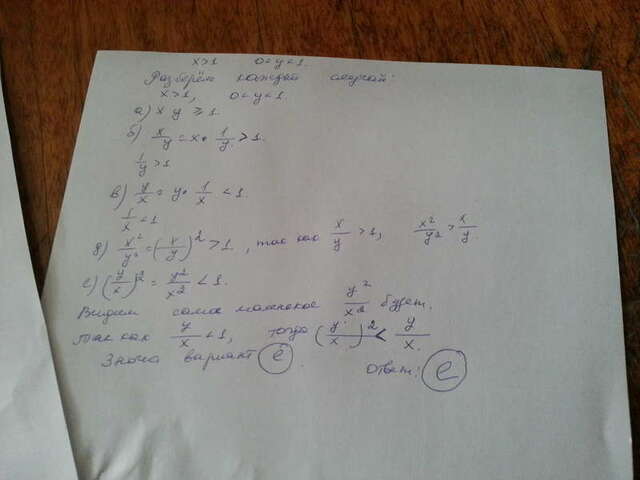 x>1 0<y<1.
Разберём каждый случай:
x>1, 0<y<1.
а) x y ≥ 1
б) x/y = x • 1/y > 1.
1/y > 1
в) y/x = y • 1/x < 1.
1/x < 1
д) x²/y² = (x/y)² > 1, так как x/y > 1, x²/y² > x/y.
е) (y/x)² = y²/x² < 1.
Видим самое маленькое y²/x² будет.
Так как y/x < 1, тогда (y/x)² < y/x.
Значит вариант е.
Ответ: е